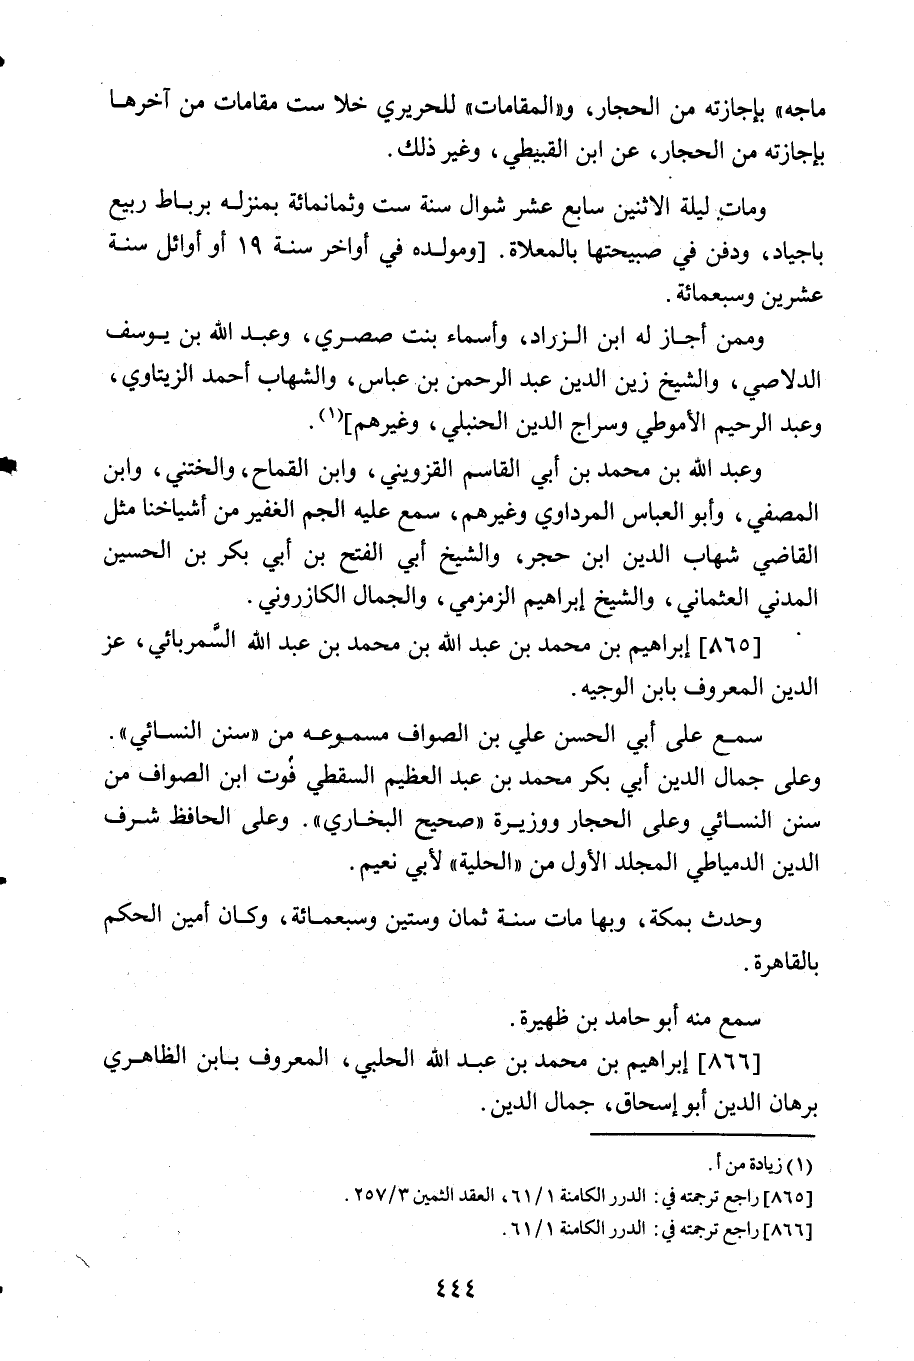 ماجه» بإجازته من الحجار، و«المقامات» للحريري خلا ست مقامات من آخرها
بإجازته من الحجار، عن ابن القبيطي، وغير ذلك.
ومات ليلة الاثنين سابع عشر شوال سنة ست وثمانمائة بمنزله برباط ربيع
باجياد، ودفن في صبيحتها بالمعلاة. [ومولده في أواخر سنة ١٩ أو أوائل سنة
عشرين وسبعمائة.
وممن أجاز له ابن الزراد، وأسماء بنت صصري، وعبد الله بن يوسف
الدلاصي، والشيخ زين الدين عبد الرحمن بن عباس، والشهاب أحمد الزيتاوي،
وعبد الرحيم الأموطي وسراج الدين الحنبلي، وغيرهم](١).
وعبد الله بن محمد بن أبي القاسم القزويني، وابن القماح، والختني، وابن
المصفي، وأبو العباس المرداوي وغيرهم، سمع عليه الجم الغفير من أشياخنا مثل
القاضي شهاب الدين ابن حجر، والشيخ أبي الفتح بن أبي بكر بن الحسين
المدني العثماني، والشيخ إبراهيم الزمزمي، والجمال الكازروني.
[٨٦٥] إبراهيم بن محمد بن عبد الله بن محمد بن عبد الله السَّمربائي، عز
الدين المعروف بابن الوجيه.
سمع على أبي الحسن علي بن الصواف مسموعه من «سنن النسائي».
وعلى جمال الدين أبي بكر محمد بن عبد العظيم السقطي فُوت ابن الصواف من
سنن النسائي وعلى الحجار ووزيرة «صحيح البخاري». وعلى الحافظ شرف
الدين الدمياطي المجلد الأول من «الحلية» لأبي نعيم.
وحدث بمكة، وبها مات سنة ثمان وستين وسبعمائة، وكان أمين الحكم
بالقاهرة.
سمع منه أبو حامد بن ظهيرة.
[٨٦٦] إبراهيم بن محمد بن عبد الله الحلبي، المعروف بابن الظاهري
برهان الدين أبو إسحاق، جمال الدين.
(١) زيادة من أ.
[٨٦٥] راجع ترجمته في: الدرر الكامنة ٦١/١، العقد الثمين ٢٥٧/٣.
[٨٦٦] راجع ترجمته في: الدرر الكامنة ٦١/١.
٤٤٤